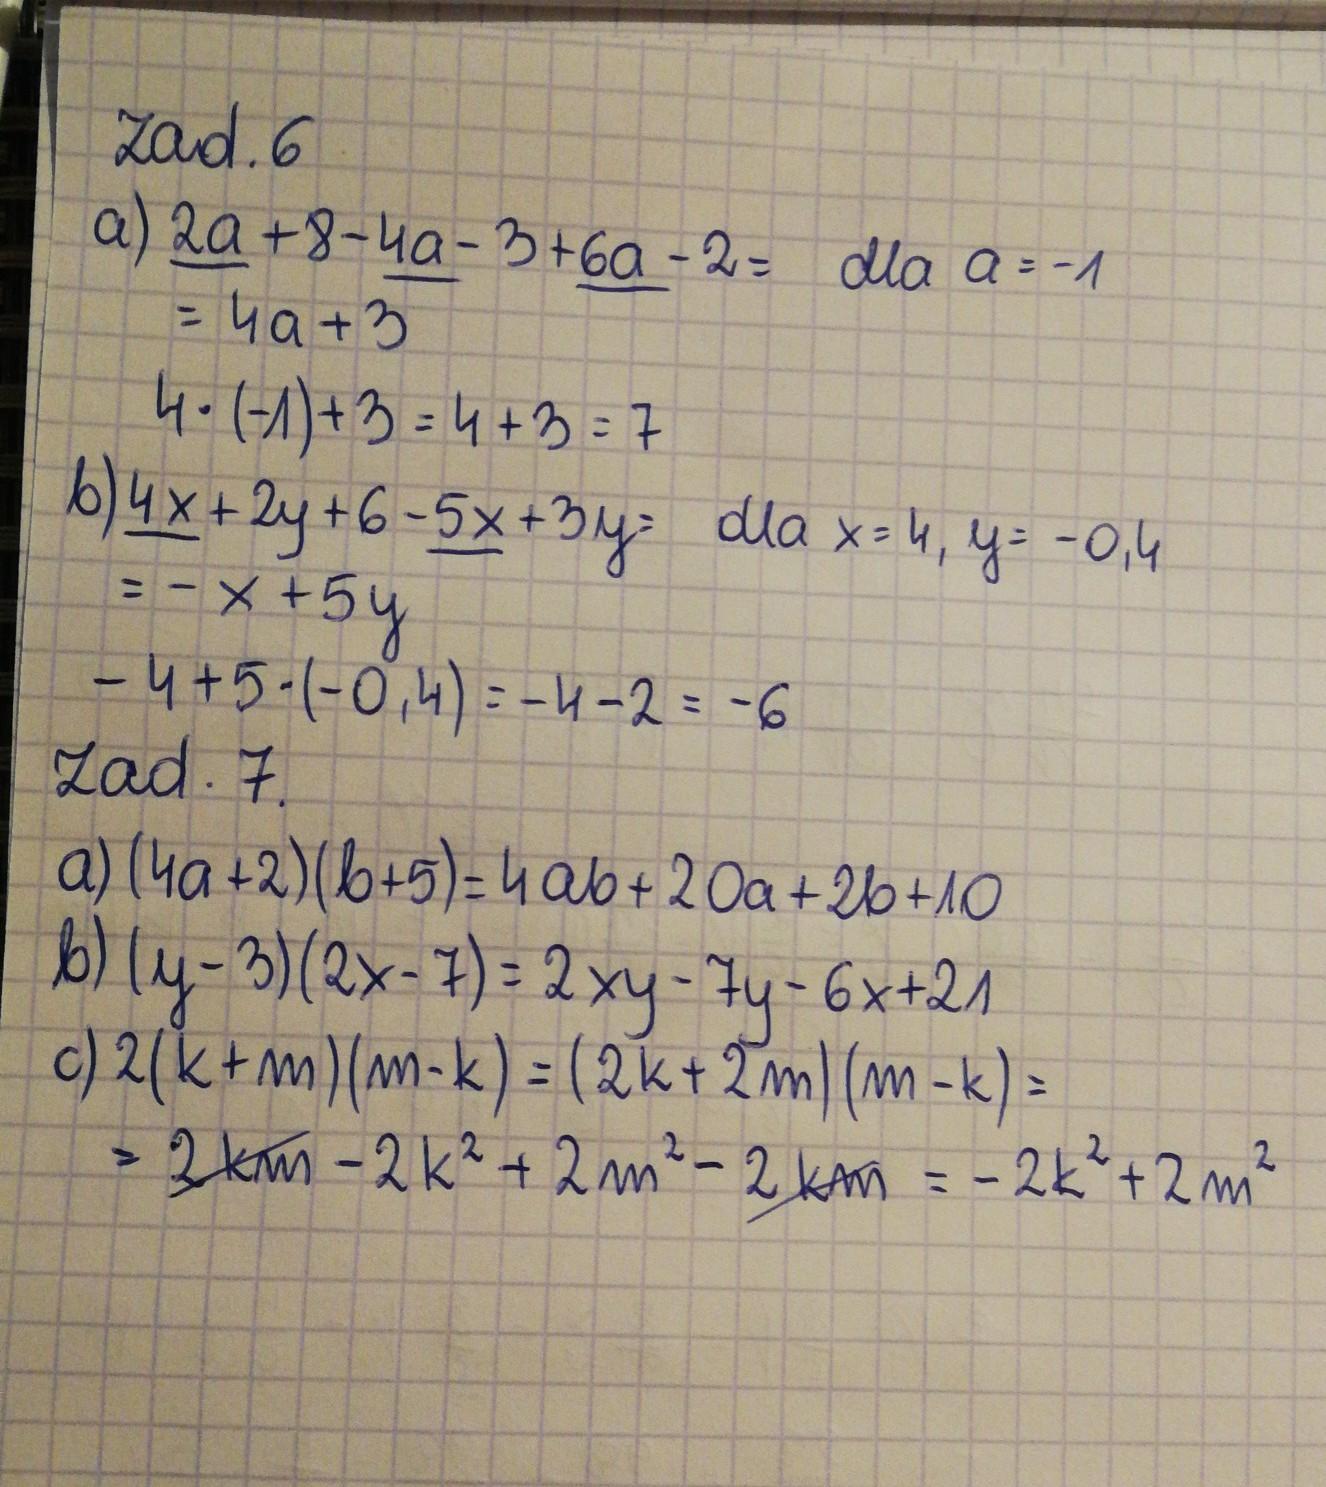 Zad. 6
a) 2a + 8 - 4a - 3 + 6a - 2 = dla a = -1
= 4a + 3
4 · (-1) + 3 = 4 + 3 = 7
b) 4x + 2y + 6 - 5x + 3y = dla x = 4, y = -0,4
= - x + 5y
- 4 + 5 · (-0,4) = -4 - 2 = -6
Zad. 7.
a) (4a + 2)(b + 5) = 4ab + 20a + 2b + 10
b) (y - 3)(2x - 7) = 2xy - 7y - 6x + 21
c) 2(k + m)(m - k) = (2k + 2m)(m - k) =
= 2km - 2k² + 2m² - 2km = -2k² + 2m²